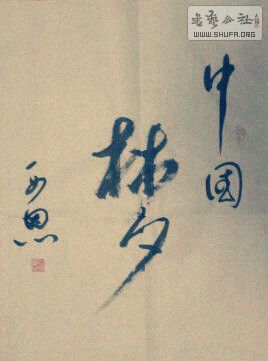 中国
梦
书艺公社
WWW.SHUFA.ORG